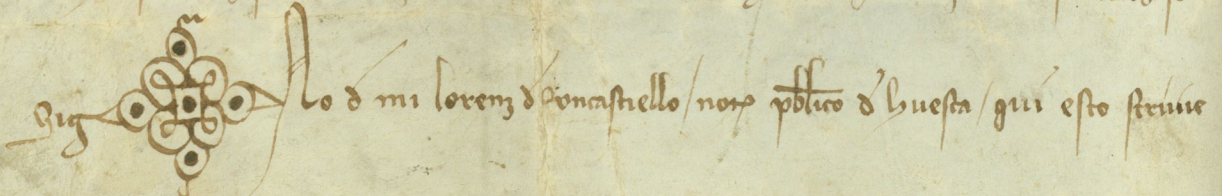 Sig No d mi lorenz d Concastiello / not pblico d huesca / qui esto scriuie